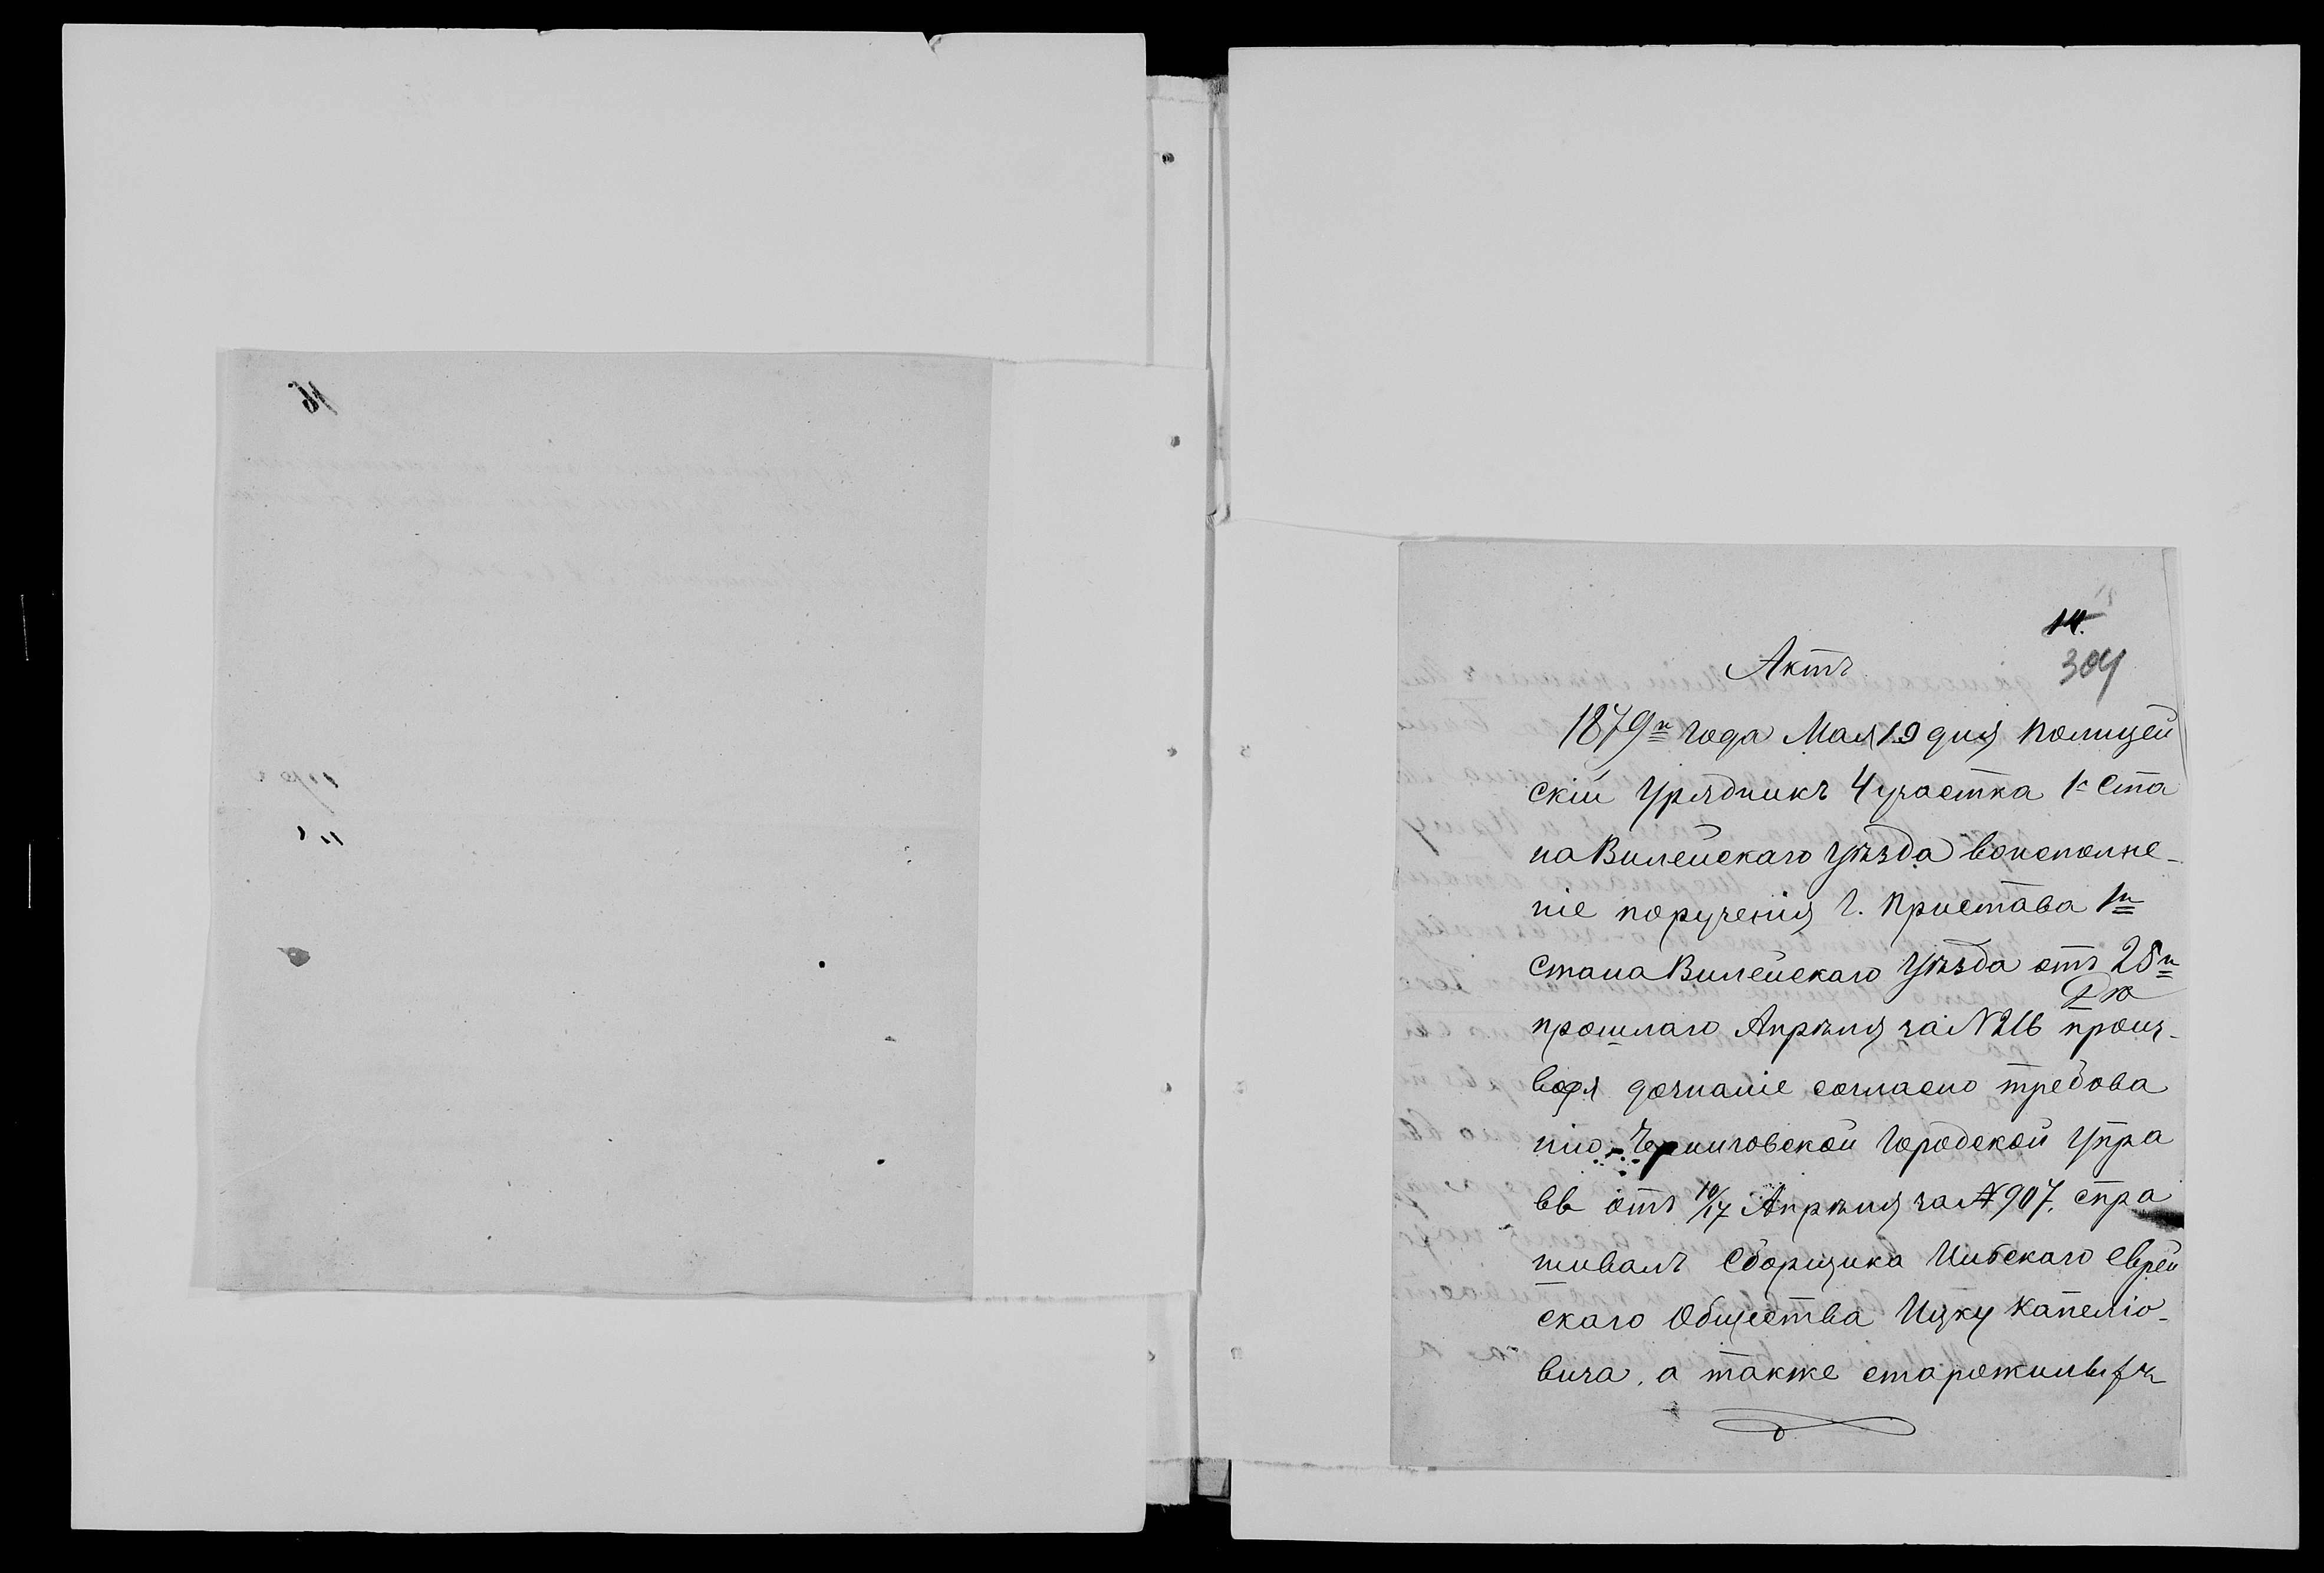 14.
304
Актъ
1879го года Мая 19 дня полицей
скій Урядникъ 4 участка 1го Ста
на Вилейскаго Уѣзда во исполне-
ніе порученія Г. Пристава 1го
Стана Вилейскаго Уѣзда отъ 28го
прошлаго Апрѣля за № 216 произ-
водя дознаніе согласно требова
нію Черниговской Городской Упра
вѣ отъ 10/17 Апрѣля за № 907. спра
шивалъ Сборщика Ильскаго Еврей
скаго Общества Ицку Капеліо-
вича, а также старожилыхъ